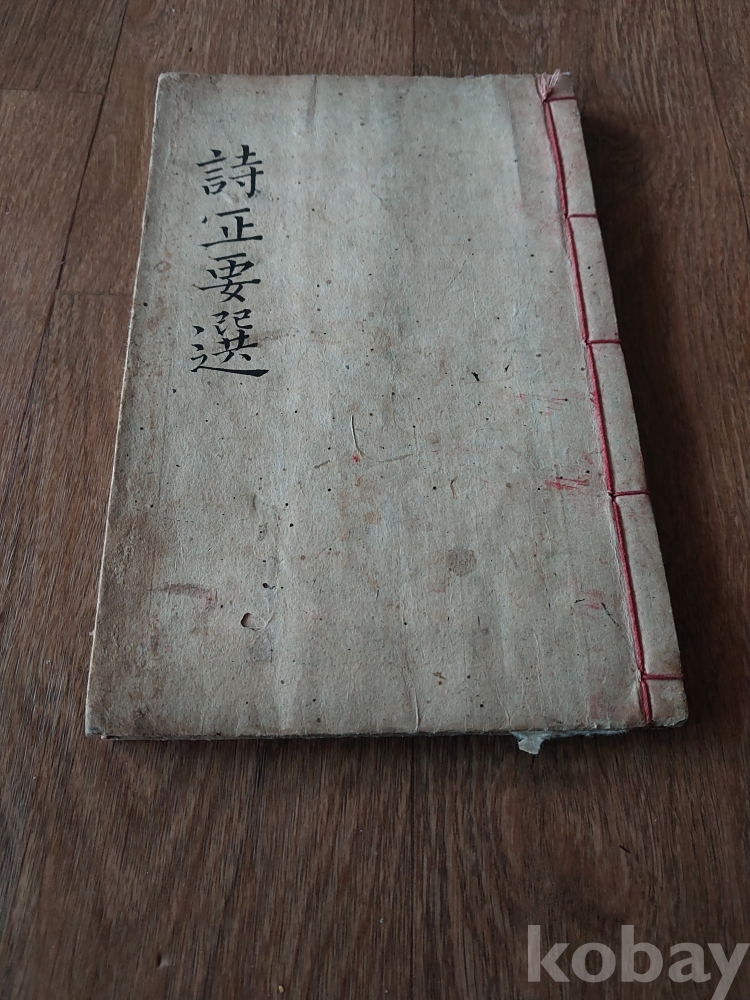 詩要選
kobay